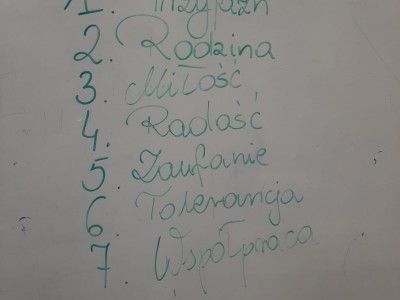 1. Przyjaźń
2. Rodzina
3. Miłość
4. Radość
5. Zaufanie
6. Tolerancja
7. Współpraca